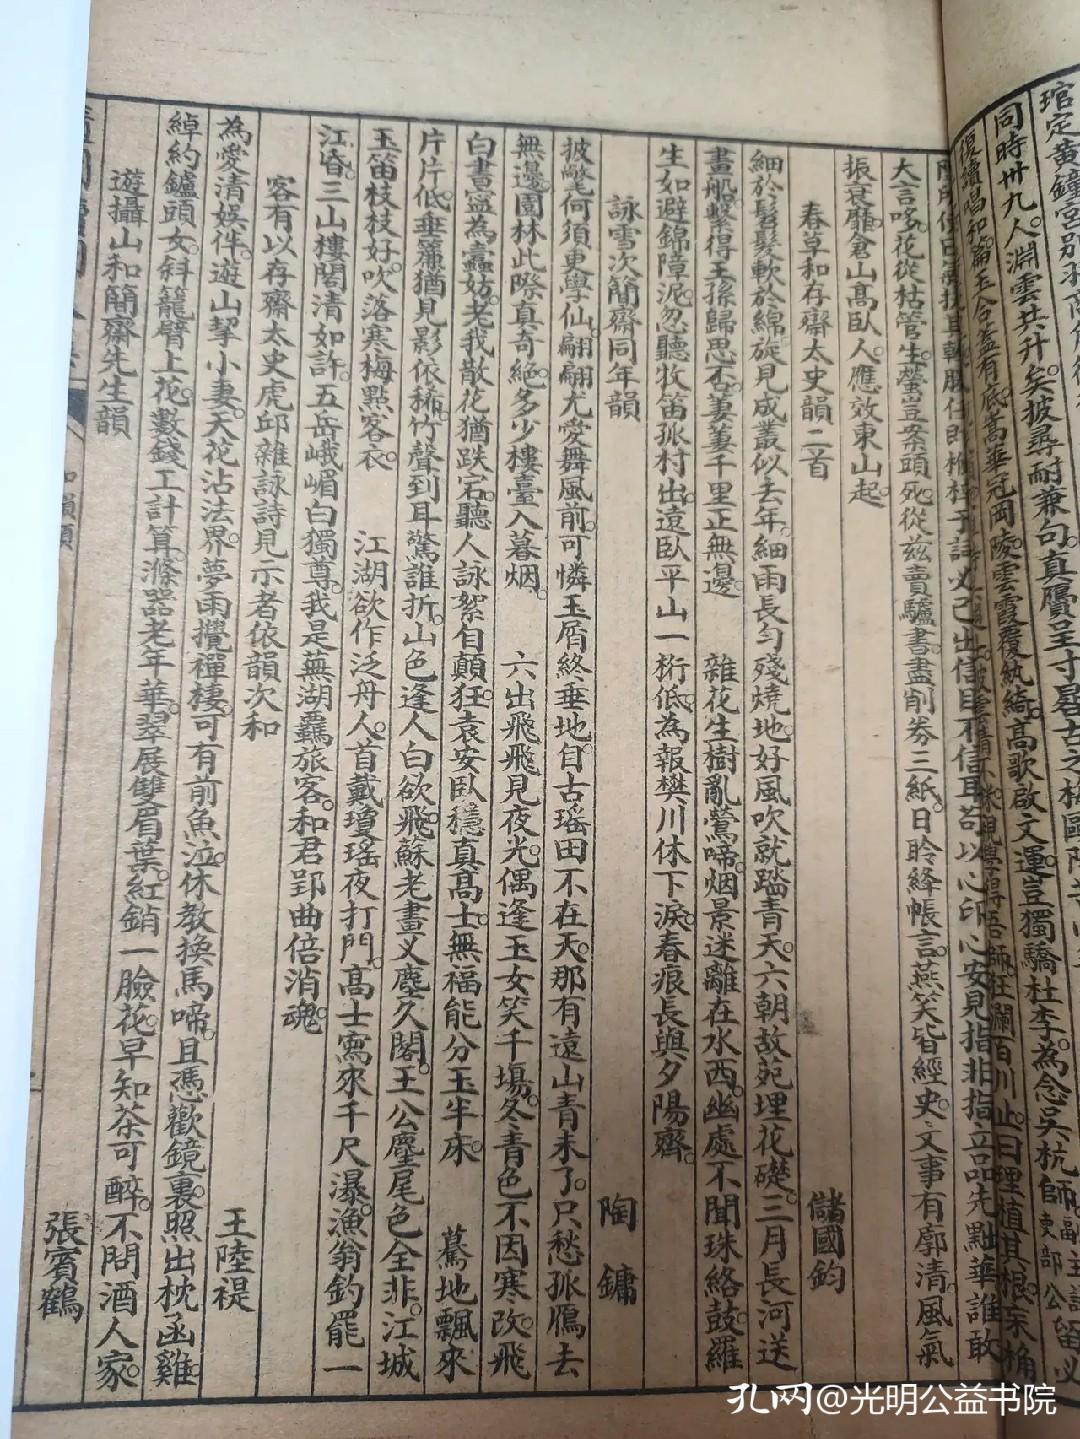 同時卅九人淵雲共升矣披尋耐兼句真贗呈寸晷
復續唱和篇玉合蓋有底嵩華冠岡陵雲霞覆紈綺高歌啟文運豈獨驕杜李為念吳杭師
大言哆花從枯管生螢豈案頭死從茲賣驢書盡削劵三紙日聆絳帳言燕笑皆經史文事有廓清風氣
振衰靡倉山高臥人應效東山起
春草和存齋太史韻二首 儲國鈞
細於鬒髮軟於綿旋見成叢似去年細雨長勻殘燒地好風吹就踏青天六朝故苑埋花礎三月長河送
畫船繫得王孫歸思否萋萋千里正無邊 雜花生樹亂鶯啼烟景迷離在水西幽處不聞珠絡鼓羅
生如避錦障泥忽聽牧笛孤村出遠臥平山一桁低為報樊川休下淚春痕長與夕陽齊
詠雪次簡齋同年韻 陶鏞
披氅何須更學仙翩翩尤愛舞風前可憐玉屑終垂地自古瑤田不在天那有遠山青未了只愁孤鴈去
無邊園林此際真奇絕多少樓臺入暮烟 六出飛飛見夜光偶逢玉女笑千塲冬青色不因寒改飛
白書寧為蠹妨老我散花猶跌宕聽人詠絮自顛狂袁安臥穩真高士無福能分玉半床 驀地飄來
片片低垂簾猶見影依稀竹聲到耳驚誰折山色逢人白欲飛蘇老畫叉塵久閣王公麈尾色全非江城
玉笛枝枝好吹落寒梅點客衣 江湖欲作泛舟人首戴瓊瑤夜打門高士寫來千尺瀑漁翁釣罷一
江昏三山樓閣清如許五岳峨嵋白獨尊我是蕪湖羈旅客和君郢曲倍消魂
客有以存齋太史虎邱雜詠詩見示者依韻次和 王陸禔
為愛清娛伴遊山挈小妻天花沾法界夢雨攪禪棲可有前魚泣休教換馬啼且憑歡鏡裏照出枕函雞
綽約鑪頭女斜籠臂上花數錢工計算滌器老年華翠展雙眉葉紅銷一臉花早知茶可醉不問酒人家
遊攝山和簡齋先生韻 張賓鶴
孔网@光明公益书院